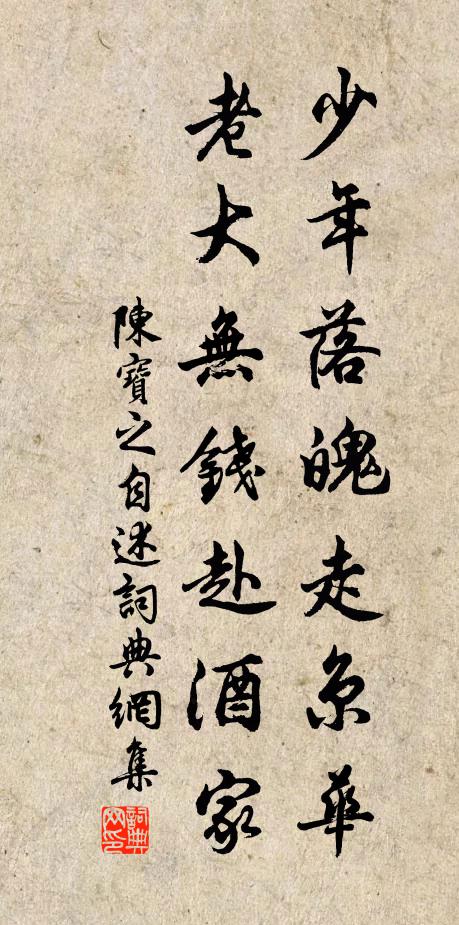 少年落魄走京華
老大無錢赴酒家
陳寶之自述詞典網集
詞典網印